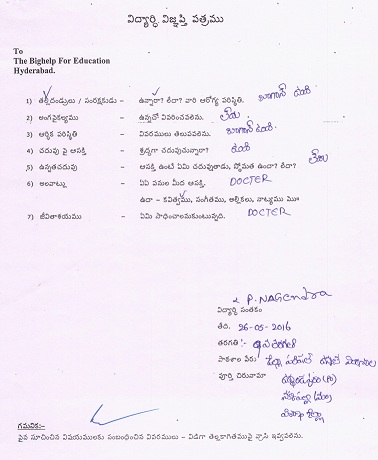 విద్యార్థి విజ్ఞప్తి పత్రము
To
The Bighelp For Education
Hyderabad.
1) తల్లిదండ్రులు / సంరక్షకుడు - ఉన్నారా? లేదా? వారి ఆరోగ్య పరిస్థితి. బాగానే ఉంది
2) అంగవైకల్యము - ఉన్నచో వివరించవలెను. లేదు
3) ఆర్థిక పరిస్థితి - వివరములు తెలుపవలెను. బాగానే ఉంది
4) చదువు పై ఆసక్తి - శ్రద్ధగా చదువుచున్నారా? ఉంది
5) ఉన్నతచదువు - ఆసక్తి ఉంటే ఏమి చదువుతాడు, స్తోమత ఉందా? లేదా? లేదు
6) అలవాట్లు - ఏఏ పనుల మీద ఆసక్తి. DOCTER
ఉదా - కవిత్వము, సంగీతము, అల్లికలు, నాట్యము
7) జీవితాశయము - ఏమి సాధించాలనుకుంటున్నది. DOCTER
P. NAGendra
విద్యార్థి సంతకం
తేది. 26-05-2016
తరగతి:-
పాఠశాల పేరు
పూర్తి చిరునామా
గమనిక:-
పైన సూచించిన విషయములకు సంబంధించిన వివరములు - విడిగా తెల్లకాగితముపై వ్రాసి ఇవ్వవలెను.